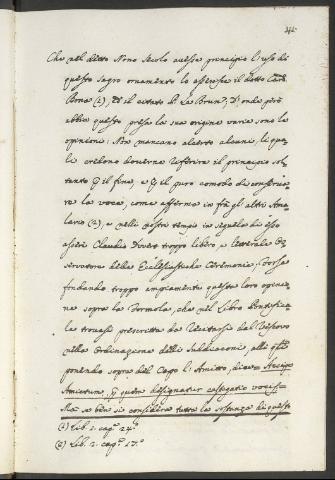 Che nel detto Nono Secolo avesse principio l'uso di
questo sagro ornamento lo asserisce il dotto Card.
Bona (1), ed il citato di La Brun, d'onde però
abbia questo presa la sua origine varie sono le
opinioni: Non mancano alcuni, li qua-
li credono doversene riferire il principio sol-
tanto il fine, e il puro comodo di conserva-
re la voce, come affermò in frà gli altri Ama-
lario (2), e nelli nostri tempi in seguela di esso
asserì Claudio Vvert troppo libero, e letterale os-
servatore delle Ecclesiastiche Ceremonie, forse
fondando troppo ampiamente questa loro opinio-
ne sopra la Formola, che nel Libro Pontifica-
le trovasi prescritta da recitarsi dal Vescovo
nella Ordinazione delli Subdiaconi, alli quali
ponendo sopra del Capo l'Amitto, dice = Accipe
Amictum, per quem designatur castigatio vocis =
Ma se ben si considera tutta la sostanza di queste
(1) Lib. 1. cap.° 24.°
(2) Lib. 2. cap.° 17.°